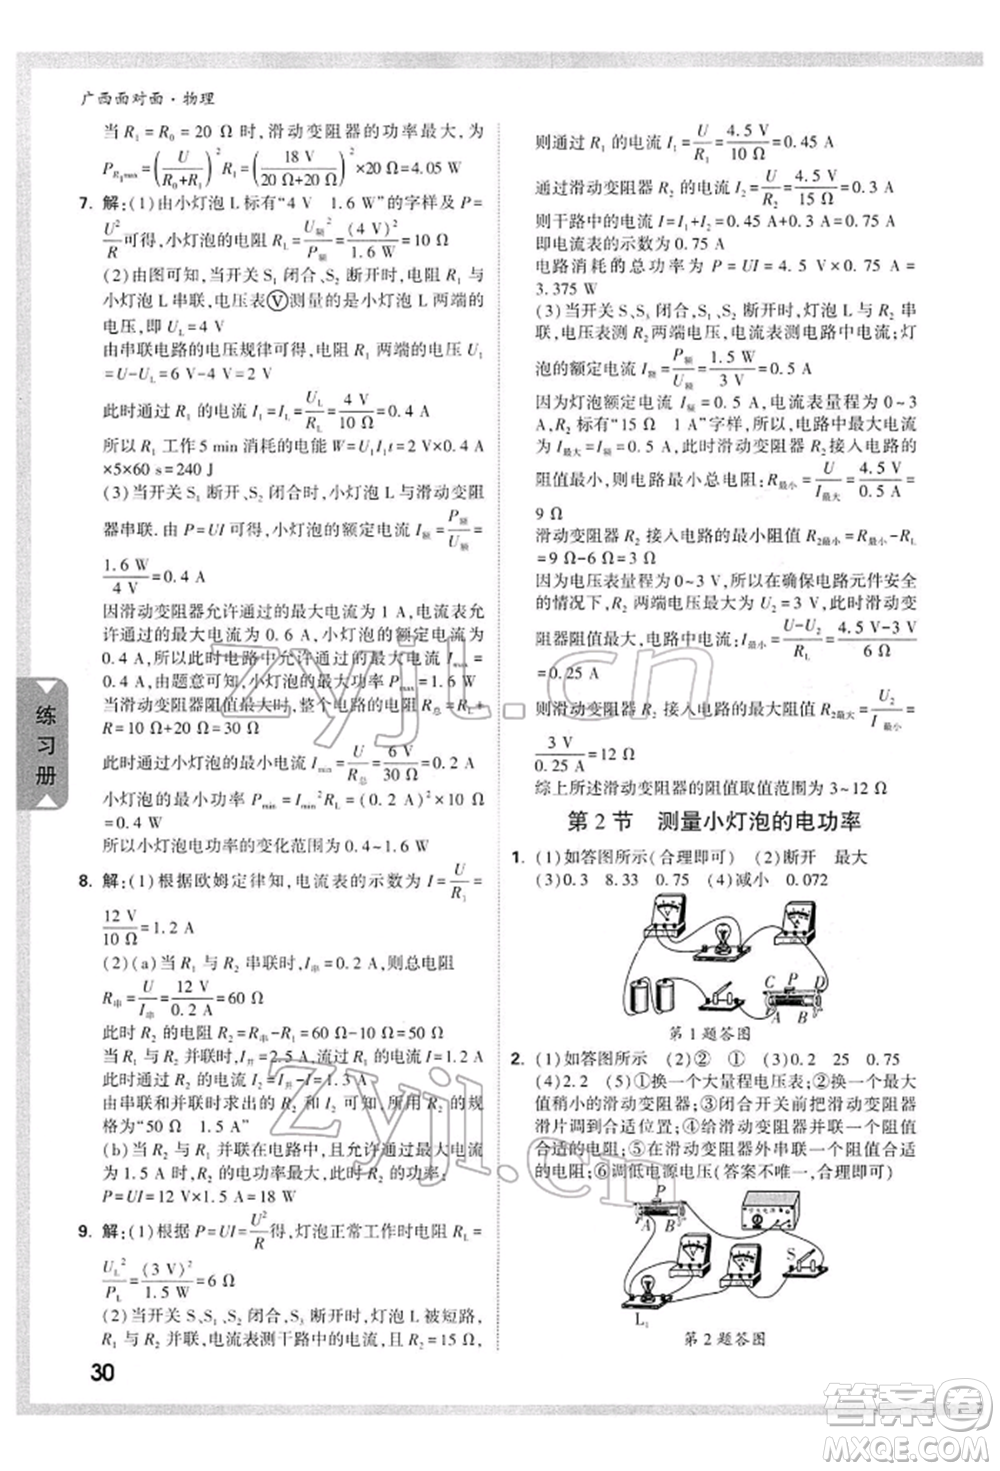 广西面对面·物理
当 R₁=R₀=20 Ω 时,滑动变阻器的功率最大,为
P_R₁max=(U/(R₀+R₁))²R₁=(18 V/(20 Ω+20 Ω))²×20 Ω=4.05 W
7. 解:(1)由小灯泡 L 标有“4 V 1.6 W”的字样及 P=
U²/R 可得,小灯泡的电阻 R_L=U额²/P额=(4 V)²/1.6 W=10 Ω
(2)由图可知,当开关 S₁ 闭合、S₂ 断开时,电阻 R₁ 与
小灯泡 L 串联,电压表Ⓥ测量的是小灯泡 L 两端的
电压,即 U_L=4 V
由串联电路的电压规律可得,电阻 R₁ 两端的电压 U₁
=U-U_L=6 V-4 V=2 V
此时通过 R₁ 的电流 I₁=I_L=U_L/R_L=4 V/10 Ω=0.4 A
所以 R₁ 工作 5 min 消耗的电能 W=U₁I₁t=2 V×0.4 A
×5×60 s=240 J
(3)当开关 S₁ 断开、S₂ 闭合时,小灯泡 L 与滑动变阻
器串联.由 P=UI 可得,小灯泡的额定电流 I额=P额/U额=
1.6 W/4 V=0.4 A
因滑动变阻器允许通过的最大电流为 1 A,电流表允
许通过的最大电流为 0.6 A,小灯泡的额定电流为
0.4 A,所以此时电路中允许通过的最大电流为
0.4 A,由题意可知,小灯泡的最大功率 P_max=1.6 W
当滑动变阻器电阻最大时,整个电路的电阻 R总=R_L+
R=10 Ω+20 Ω=30 Ω
此时通过小灯泡的最小电流 I_min=U/R总=6 V/30 Ω=0.2 A
小灯泡的最小功率 P_min=I_min²R_L=(0.2 A)²×10 Ω
=0.4 W
所以小灯泡电功率的变化范围为 0.4~1.6 W
8. 解:(1)根据欧姆定律知,电流表的示数为 I=U/R₁=
12 V/10 Ω=1.2 A
(2)(a)当 R₁ 与 R₂ 串联时,I串=0.2 A,则总电阻
R串=U/I串=12 V/0.2 A=60 Ω
此时 R₂ 的电阻 R₂=R串-R₁=60 Ω-10 Ω=50 Ω
当 R₁ 与 R₂ 并联时,I并=2.5 A,流过 R₁ 的电流=1.2 A
串联和并联时求出的 R₂ 和 I₂ 可知,所用 R₂ 的
规格为“50 Ω 1.5 A”
(b)当 R₂ 并联在电路中,且允许通过的最大电流
为 1.5 A 时,R₂ 的电功率最大,最大功率:
P=UI=12 V×1.5 A=18 W
9. 解:(1)根据 P=UI=U²/R得,灯泡正常工作时电阻 R_L=
U_L²/P_L=(3 V)²/1.5 W=6 Ω
(2)当开关 S、S₁、S₂ 闭合,S₃ 断开时,灯泡 L 被短路,
R₁ 与 R₂ 并联,电流表测干路中的电流,且 R₂=15 Ω,
则通过 R₁ 的电流 I₁=U/R₁=4.5 V/10 Ω=0.45 A
通过滑动变阻器 R₂ 的电流 I₂=U/R₂=4.5 V/15 Ω=0.3 A
则干路中的电流 I=I₁+I₂=0.45 A+0.3 A=0.75 A
即电流表的示数为 0.75 A
电路消耗的总功率为 P=UI=4.5 V×0.75 A=
3.375 W
(3)当开关 S、S₃ 闭合,S₁、S₂ 断开时,灯泡 L 与 R₂ 串
联,电压表测 R₂ 两端电压,电流表测电路中电流;灯
泡的额定电流 I额=P额/U额=1.5 W/3 V=0.5 A
因为灯泡额定电流 I额=0.5 A,电流表量程为 0~3
A,R₂ 标有“15 Ω 1 A”字样,所以电路中最大电流
为 I最大=I额=0.5 A,此时滑动变阻器 R₂接入电路的
阻值最小,则电路最小总电阻:R最小=U/I最大=4.5 V/0.5 A=
9 Ω
滑动变阻器 R₂ 接入电路的最小阻值 R₂最小=R最小-R_L
=9 Ω-6 Ω=3 Ω
因为电压表量程为 0~3 V,在确保电路元件安全的
情况下,R₂ 两端电压最大为 U₂=3 V,此时滑动变
阻器阻值最大,电路中电流:I最小=(U-U₂)/R_L=(4.5 V-3 V)/6 Ω=
0.25 A
则滑动变阻器 R₂ 接入电路的最大阻值 R₂最大=U₂/I最小=
3 V/0.25 A=12 Ω
综上所述滑动变阻器的阻值取值范围为 3~12 Ω
第 2 节 测量小灯泡的电功率
1. (1)如答图所示(合理即可) (2)断开 最大
(3)0.3 8.33 0.75 (4)减小 0.072
C P D
A B
第 1 题答图
2. (1)如答图所示 (2)② ① (3)0.3 25 0.75
(4)2.2 (5)①换一个大量程电压表;②换一个最大
值稍小的滑动变阻器;③闭合开关前把滑动变阻器
滑片调到合适位置;④给滑动变阻器并联一个阻值
合适的电阻;⑤在滑动变阻器外串联一个阻值合适
的电阻;⑥调低电源电压(答案不唯一,合理即可)
P
A B
S
L₁
第 2 题答图
练习册
30
zyjl.cn
zyjl.cn
答案圈
MXQE.COM